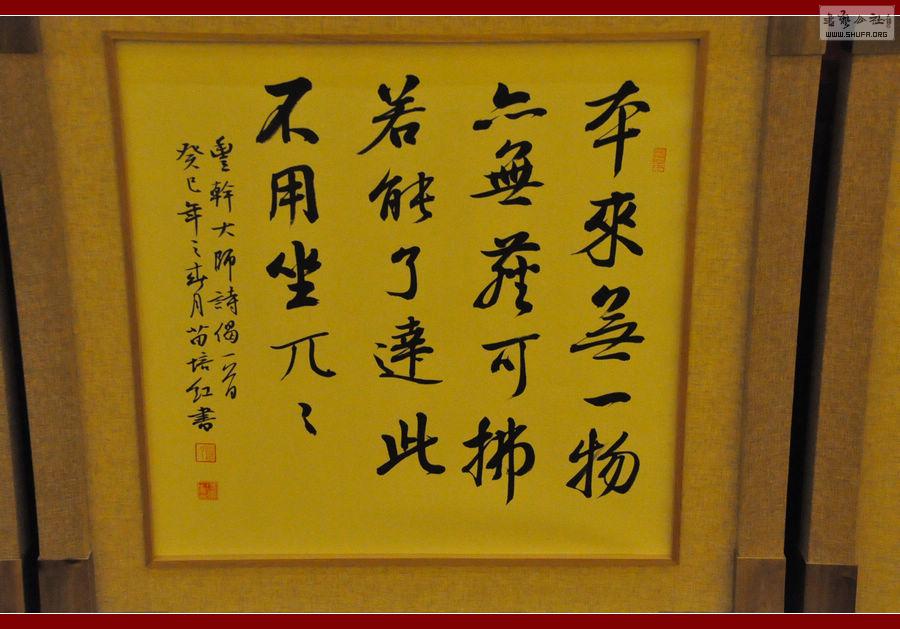 本來無一物
亦無塵可拂
若能了達此
不用坐兀〻
豐幹大師詩偈一首
癸巳年之春月苗培紅書
書藝公社
WWW.SHUFA.ORG